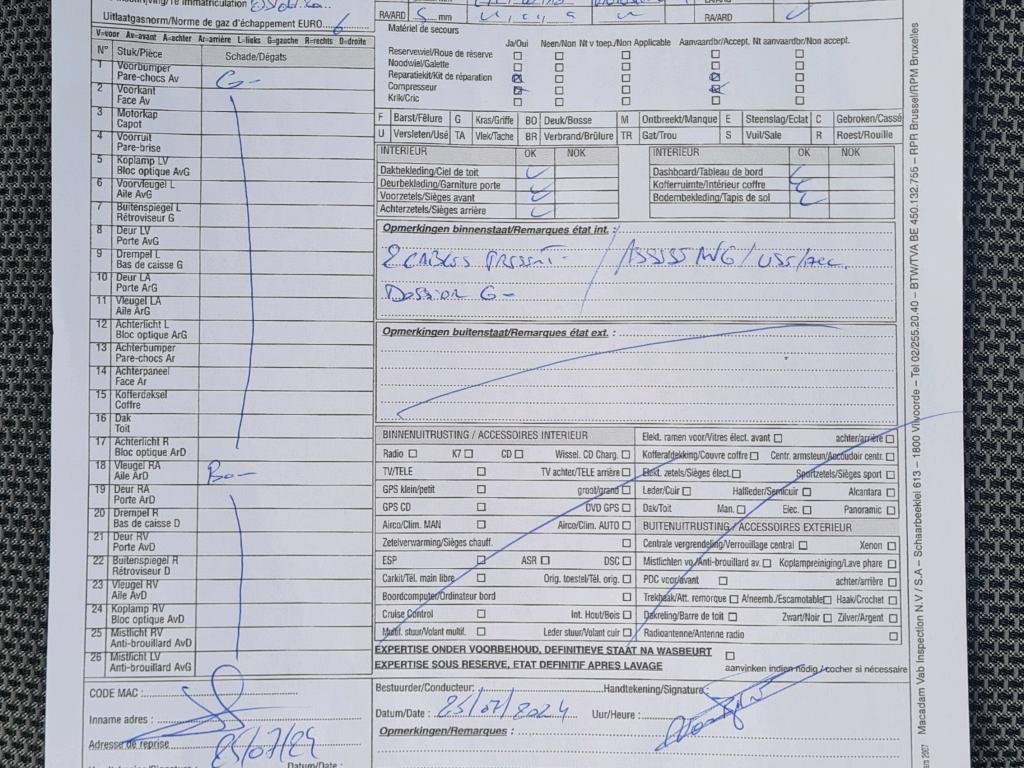 Uitlaatgasnorm/Norme de gaz d'échappement EURO 6
V=voor Av=avant A=achter Ar=arrière L=links G=gauche R=rechts D=droite
N° Stuk/Pièce Schade/Dégats
1 Voorbumper G-
Pare-chocs Av
2 Voorkant
Face Av
3 Motorkap
Capot
4 Voorruit
Pare-brise
5 Koplamp LV
Bloc optique AvG
6 Voorvleugel L
Aile AvG
7 Buitenspiegel L
Rétroviseur G
8 Deur LV
Porte AvG
9 Drempel L
Bas de caisse G
10 Deur LA
Porte ArG
11 Vleugel LA
Aile ArG
12 Achterlicht L
Bloc optique ArG
13 Achterbumper
Pare-chocs Ar
14 Achterpaneel
Face Ar
15 Kofferdeksel
Coffre
16 Dak
Toit
17 Achterlicht R
Bloc optique ArD
18 Vleugel RA Bo-
Aile ArD
19 Deur RA
Porte ArD
20 Drempel R
Bas de caisse D
21 Deur RV
Porte AvD
22 Buitenspiegel R
Rétroviseur D
23 Vleugel RV
Aile AvD
24 Koplamp RV
Bloc optique AvD
25 Mistlicht RV
Anti-brouillard AvD
26 Mistlicht LV
Anti-brouillard AvG
CODE MAC :
Inname adres :
Adresse de reprise 25/07/24
Datum/Date :
RA/ARD 5 mm RA/ARD
Matériel de secours
Ja/Oui Neen/Non Nt v toep./Non Applicable Aanvaardbr/Accept. Nt aanvaardbr/Non accept.
Reservewiel/Roue de réserve
Noodwiel/Galette
Reparatiekit/Kit de réparation
Compresseur
Krik/Cric
F Barst/Fêlure G Kras/Griffe BO Deuk/Bosse M Ontbreekt/Manque E Steenslag/Eclat C Gebroken/Cassé
U Versleten/Usé TA Vlek/Tache BR Verbrand/Brûlure TR Gat/Trou S Vuil/Sale R Roest/Rouille
INTERIEUR OK NOK INTERIEUR OK NOK
Dakbekleding/Ciel de toit Dashboard/Tableau de bord
Deurbekleding/Garniture porte Kofferruimte/Intérieur coffre
Voorzetels/Sièges avant Bodembekleding/Tapis de sol
Achterzetels/Sièges arrière
Opmerkingen binnenstaat/Remarques état int. :
2 CABLES PRESENT-
Dossier G-
Opmerkingen buitenstaat/Remarques état ext. :
BINNENUITRUSTING / ACCESSOIRES INTERIEUR
Radio K7 CD Wissel. CD Charg.
TV/TELE TV achter/TELE arrière
GPS klein/petit groot/grand
GPS CD DVD GPS
Airco/Clim. MAN Airco/Clim. AUTO
Zetelverwarming/Sièges chauff.
ESP ASR DSC
Carkit/Tél. main libre Orig. toestel/Tél. orig.
Boordcomputer/Ordinateur bord
Cruise Control Int. Hout/Bois
Multif. stuur/Volant multif. Leder stuur/Volant cuir
Elekt. ramen voor/Vitres élect. avant achter/arrière
Kofferafdekking/Couvre coffre Centr. armsteun/Accoudoir centr.
Elekt. zetels/Sièges élect. Sportzetels/Sièges sport
Leder/Cuir Halfleder/Semicuir Alcantara
Dak/Toit Man. Elec. Panoramic
BUITENUITRUSTING / ACCESSOIRES EXTERIEUR
Centrale vergrendeling/Verrouillage central Xenon
Mistlichten vo./Anti-brouillard av. Koplampreiniging/Lave phare
PDC voor/avant achter/arrière
Trekhaak/Att. remorque Afneemb./Escamotable Haak/Crochet
Dakreling/Barre de toit Zwart/Noir Zilver/Argent
Radioantenne/Antenne radio
EXPERTISE ONDER VOORBEHOUD, DEFINITIEVE STAAT NA WASBEURT
EXPERTISE SOUS RESERVE, ETAT DEFINITIF APRES LAVAGE aanvinken indien nodig / cocher si nécessaire
Bestuurder/Conducteur: Handtekening/Signature:
Datum/Date : 25/07/2024 Uur/Heure :
Opmerkingen/Remarques :
Macadam Vab Inspection N.V / S.A – Schaarbeeklei 613 – 1800 Vilvoorde – Tel 02/255.20.40 – BTW/TVA BE 450.132.755 – RPR Brussel/RPM Bruxelles